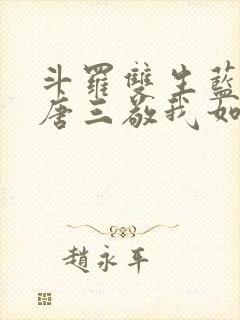 斗羅雙生藍
唐三敬我如
趙永平